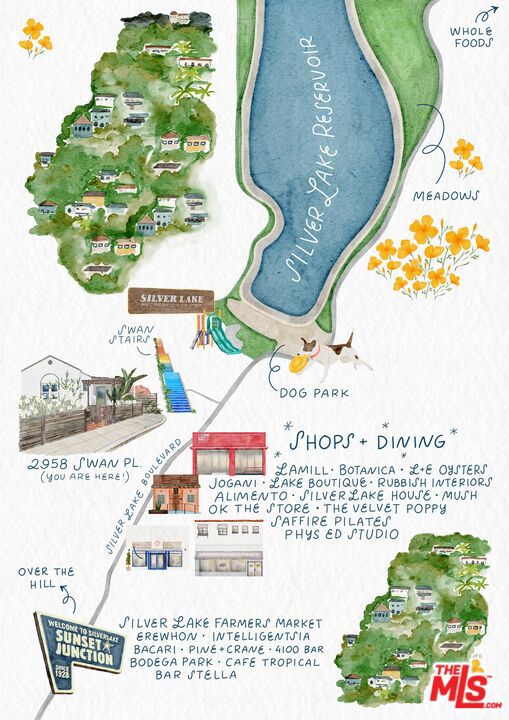 WHOLE
FOODS
SILVER LAKE RESERVOIR
MEADOWS
SILVER LAKE
RECREATION CENTER
SWAN
STAIRS
DOG PARK
2958 SWAN PL.
(YOU ARE HERE!)
SILVER LAKE BOULEVARD
*SHOPS + *DINING*
LAMILL · BOTANICA · L&E OYSTERS
JOGANI · LAKE BOUTIQUE · RUBBISH INTERIORS
ALIMENTO · SILVER LAKE HOUSE · MUSH
OK THE STORE · THE VELVET POPPY
SAFFIRE PILATES
PHYS ED STUDIO
OVER THE
HILL
WELCOME TO SILVERLAKE
SUNSET
JUNCTION
SINCE
1928
SILVER LAKE FARMERS MARKET
EREWHON · INTELLIGENTSIA
BACARI · PINE+CRANE · 4100 BAR
BODEGA PARK · CAFE TROPICAL
BAR STELLA
THE
MLS™
.COM